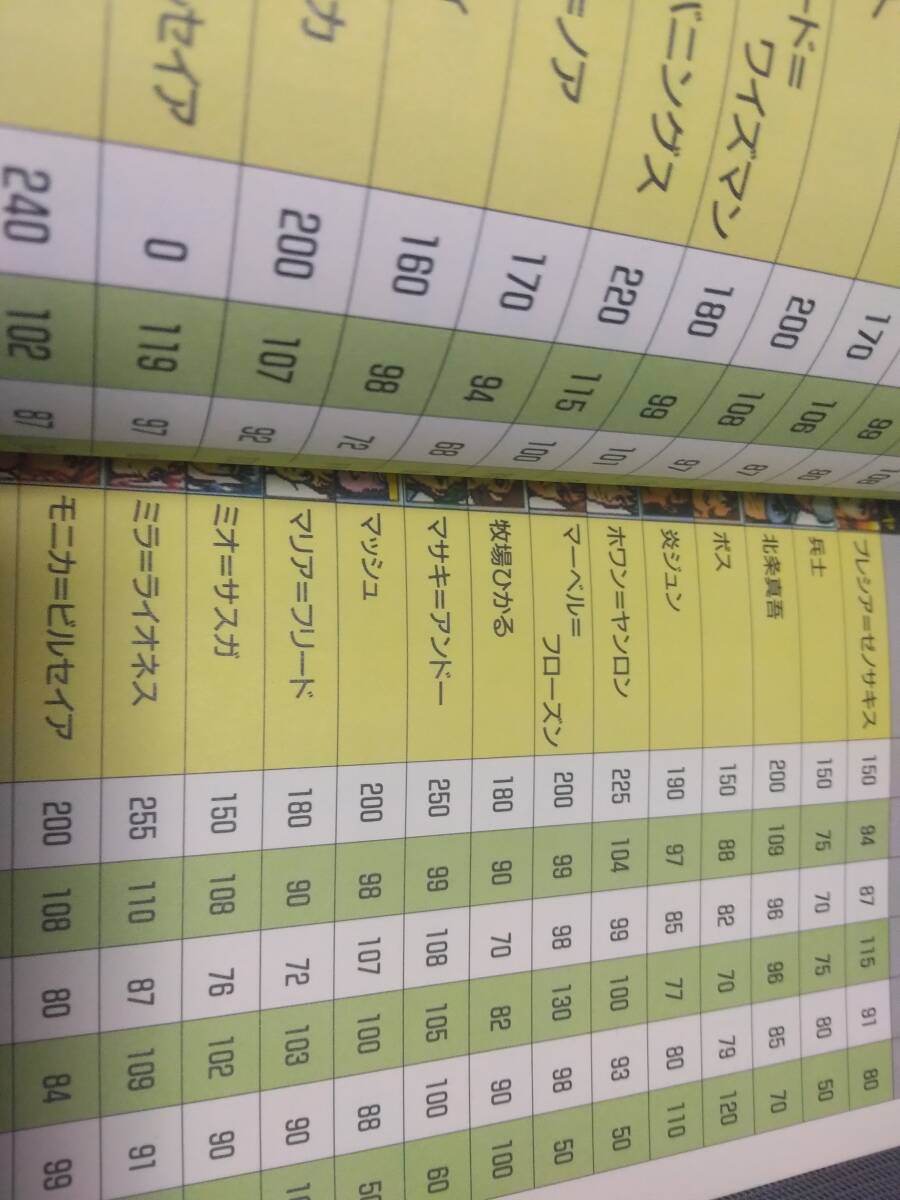 170 106 87
200 108 97
ード=
ワイズマン 180 99 101
バニングス 220 115 100
=ノア 170 94 68
160 98 72
カ 200 107 92
セイア 0 119 97
240 102 87
99 80
108
プレシア=ゼノサキス 150 94 87 115 91 80
兵士 150 75 70 75 80 50
北条真吾 200 109 96 96 85 70
ボス 150 88 82 70 79 120
炎ジュン 190 97 85 77 80 110
ホワン=ヤンロン 225 104 99 100 93 50
マーベル=
フローズン 200 99 98 130 98 50
牧場ひかる 180 90 70 82 90 100
マサキ=アンドー 250 99 108 105 100 60
マッシュ 200 98 107 100 88
マリア=フリード 180 90 72 103 90
ミオ=サスガ 150 108 76 102 90
ミラ=ライオネス 255 110 87 109 91
モニカ=ビルセイア 200 108 80 84 99